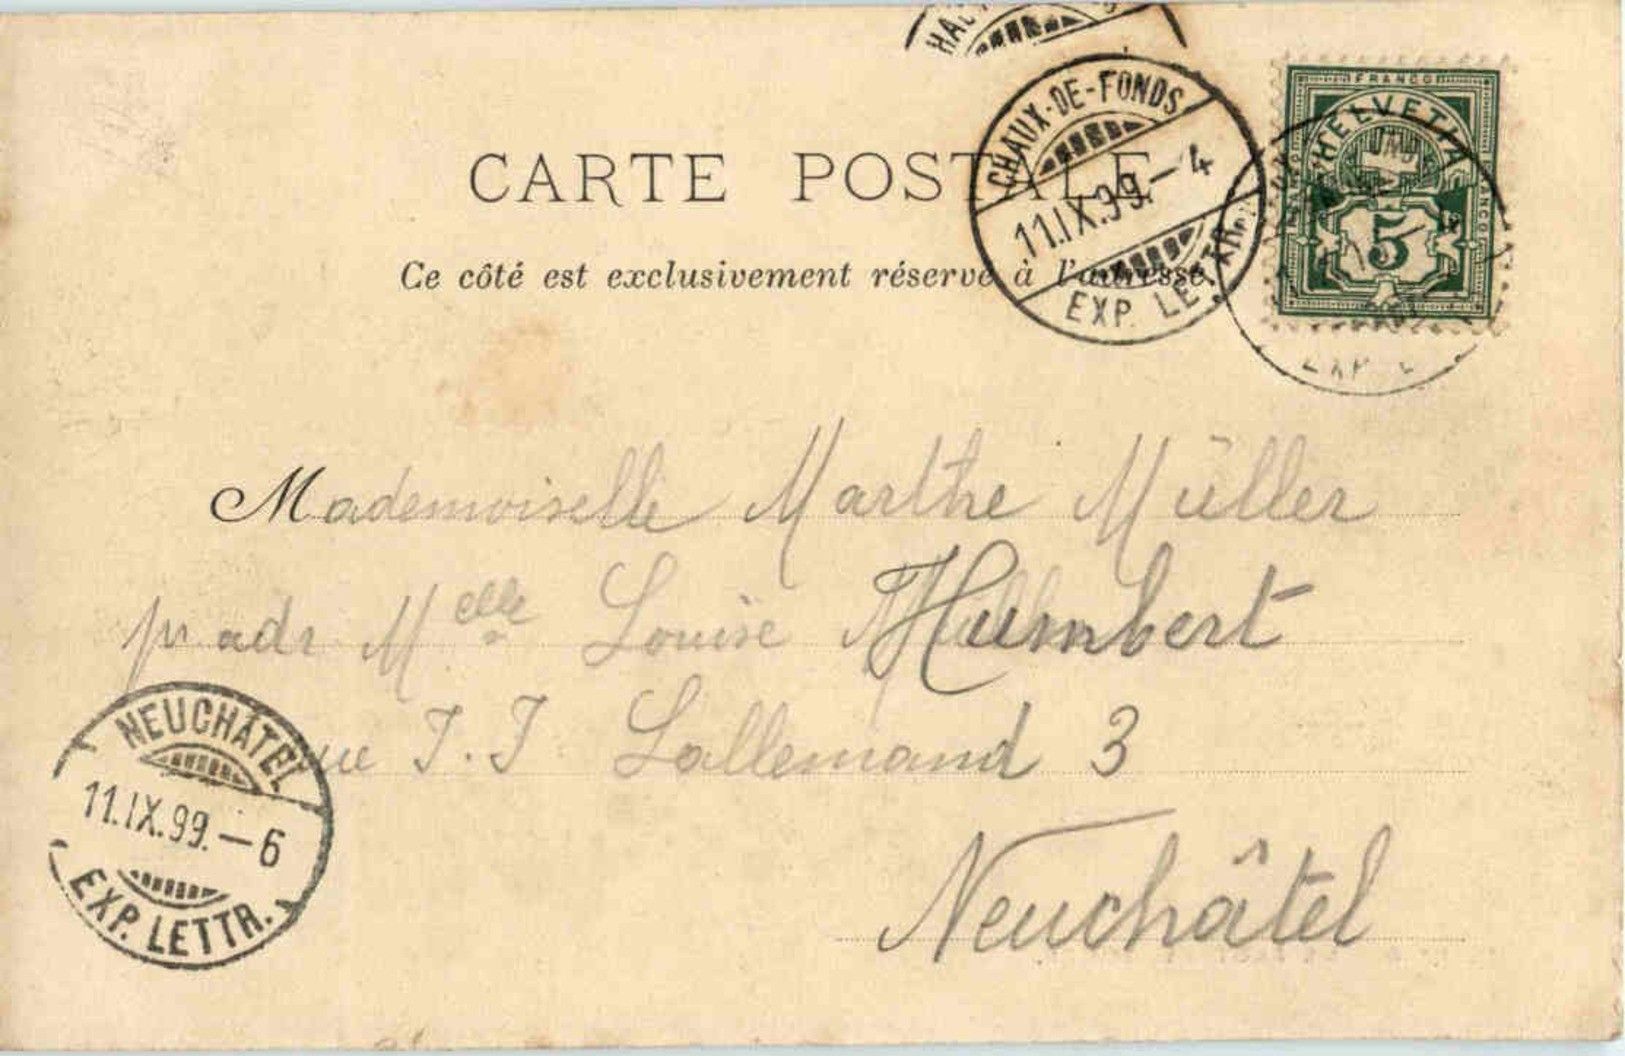 CHAUX-DE-FONDS
11.IX.99.–4
EXP. LETTR.
FRANCO
HELVETIA
5
CARTE POSTALE
Ce côté est exclusivement réservé à l'adresse
Mademoiselle Marthe Müller
pr adr Melle Louise Humbert
rue J. J. Lallemand 3
Neuchâtel
NEUCHÂTEL
11.IX.99.–6
EXP. LETTR.